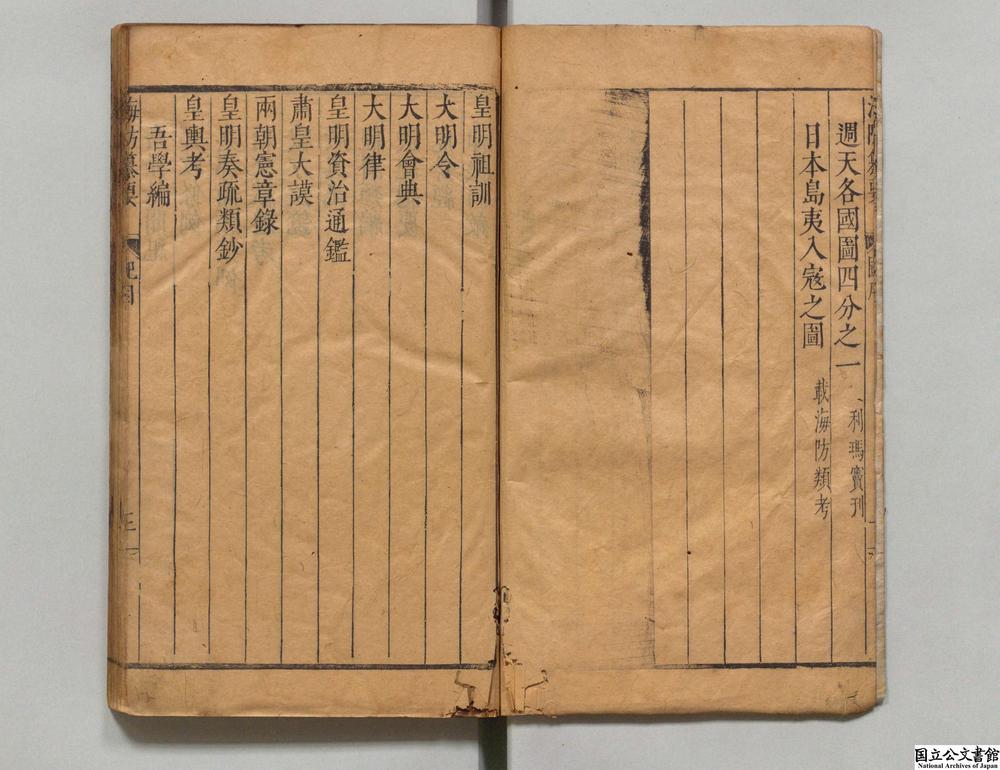 週天各國圖四分之一 利瑪竇刊
日本島夷入寇之圖 載海防類考
皇明祖訓
大明令
大明會典
大明律
皇明資治通鑑
肅皇大謨
兩朝憲章錄
皇明奏疏類鈔
皇輿考
吾學編
海防纂要
三
国立公文書館
National Archives of Japan